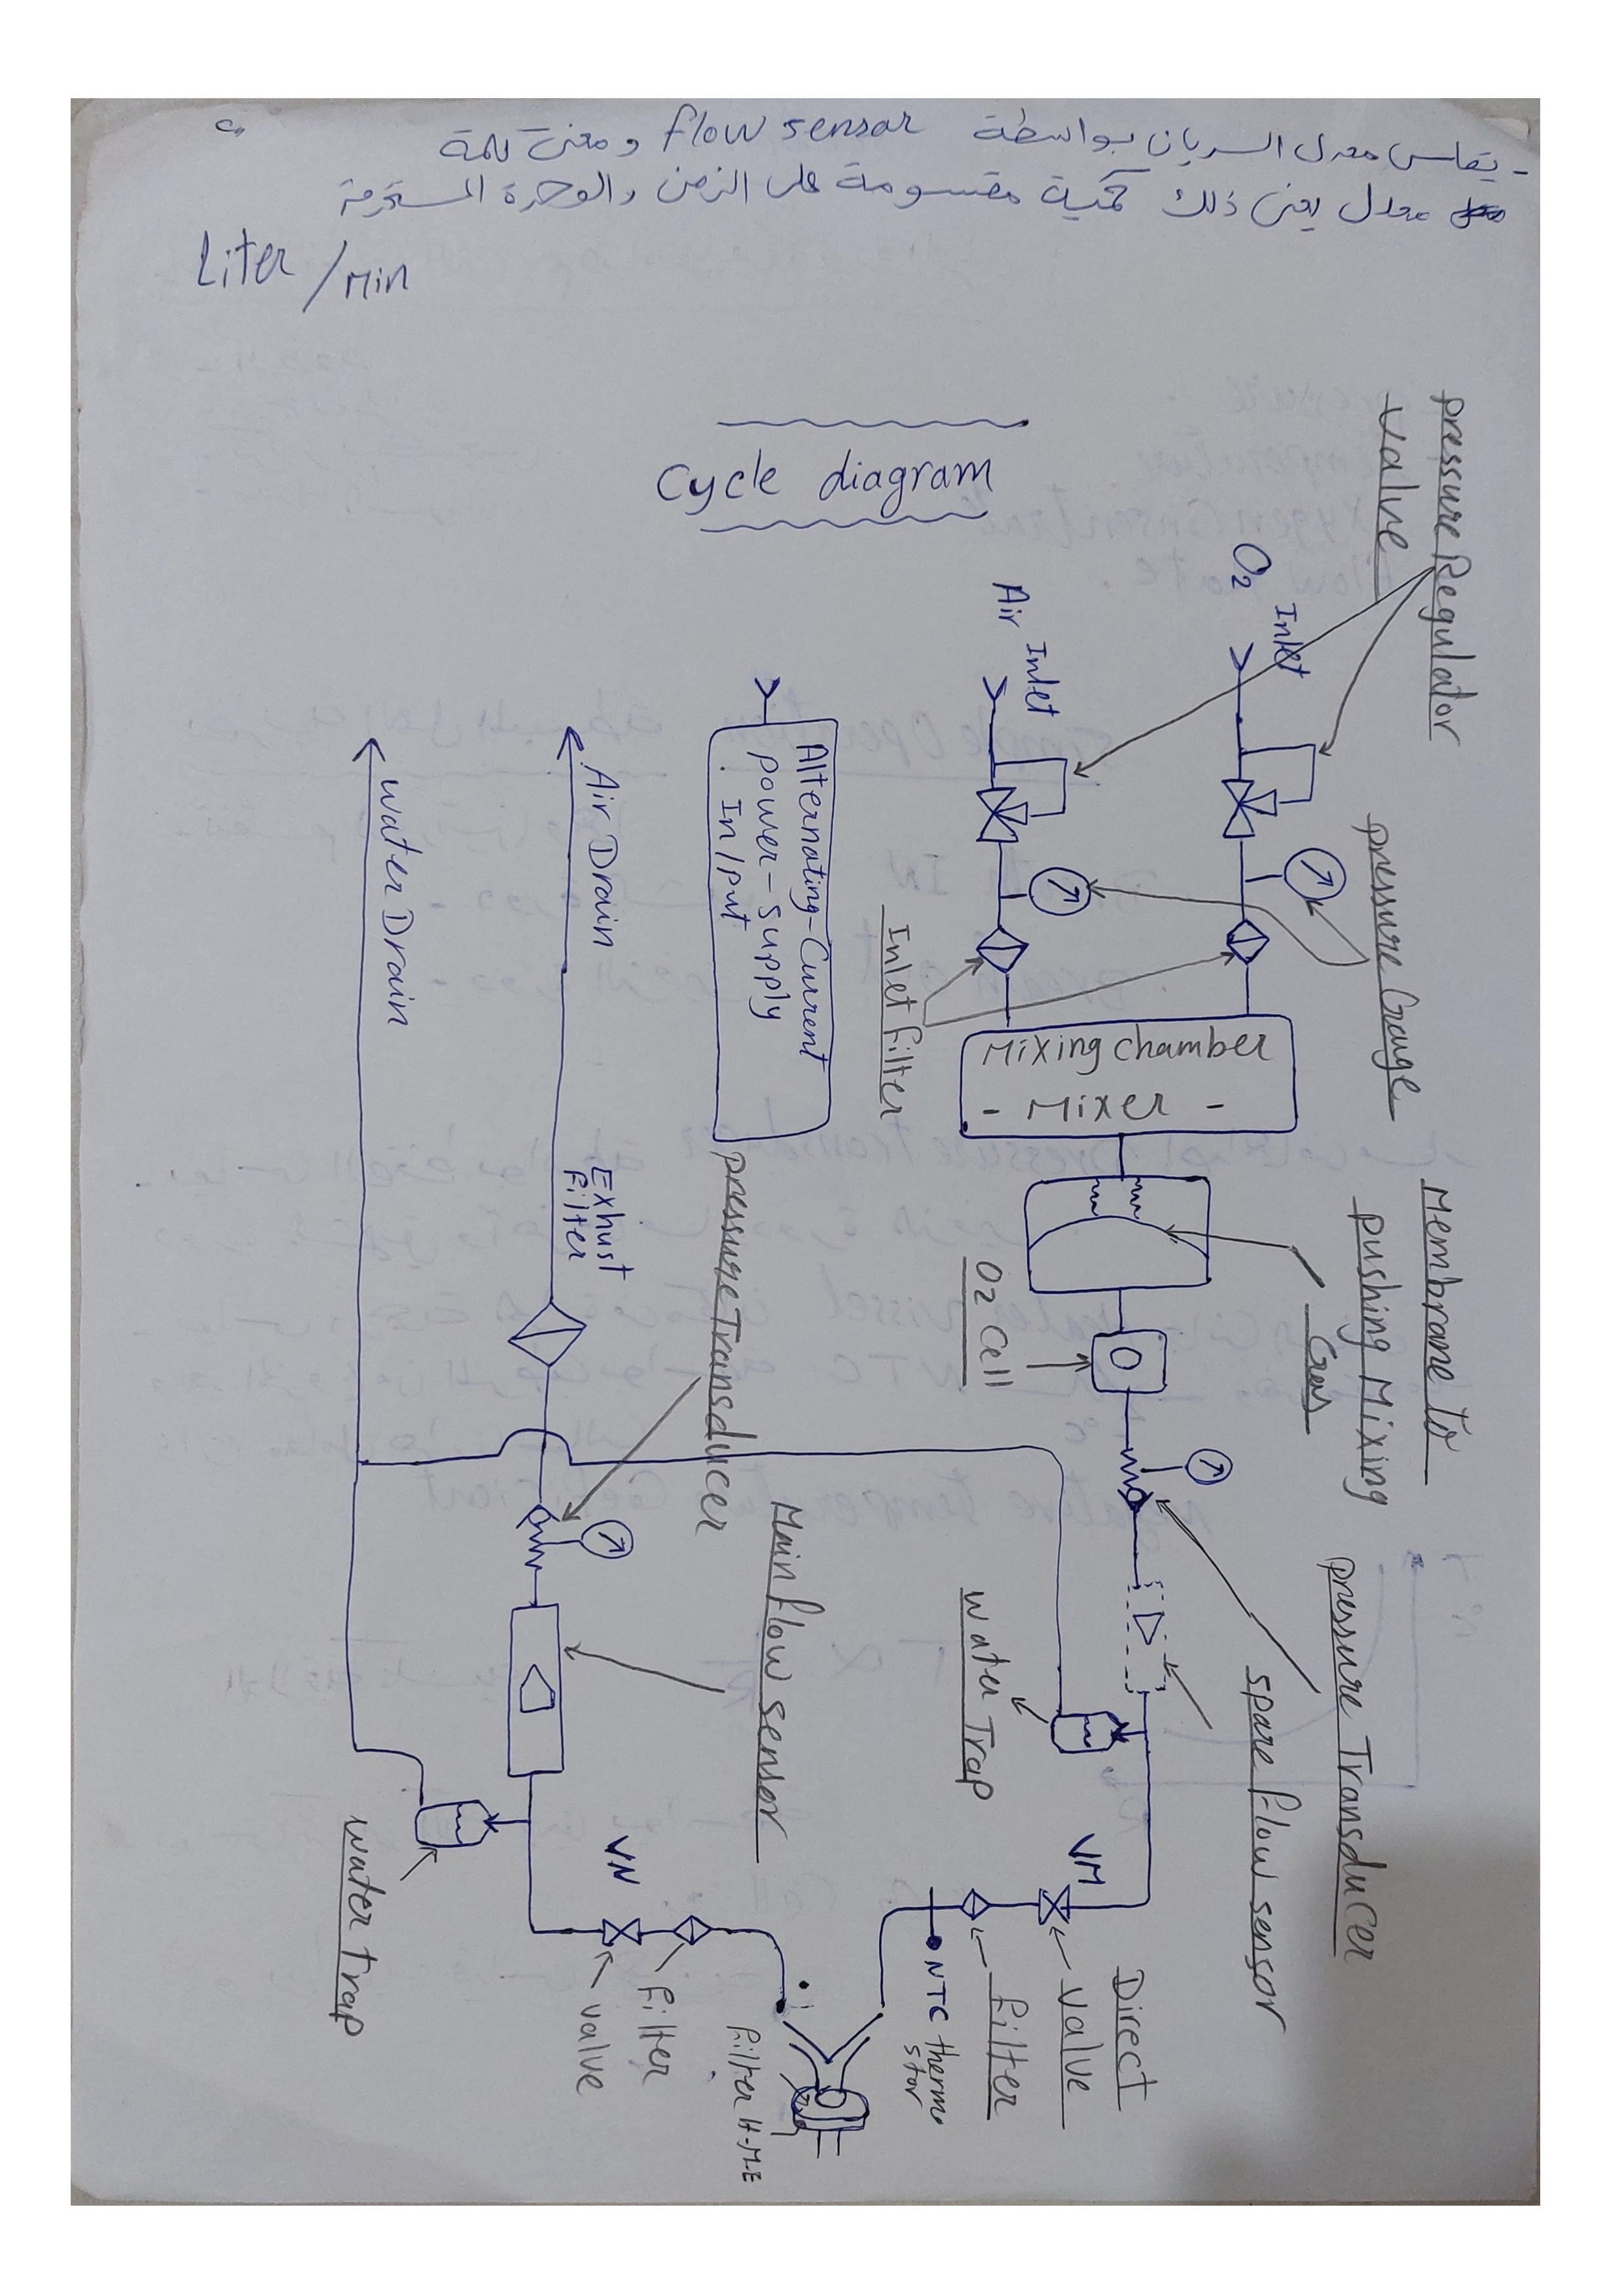 - يقاس معدل السريان بواسطة flow sensor و معنى كلمة
معدل يعنى ذلك كمية مقسومة على الزمن والوحدة المستخدمة
Liter / Min
Cycle diagram
pressure Regulator
Valve
O2 Inlet
Air Inlet
pressure Gauge
Inlet filter
Mixing chamber
- Mixer -
Alternating-Current
power-supply
In/put
Air Drain
water Drain
Membrane to
pushing Mixing
Gas
O2 Cell
Exhust
filter
pressure Transducer
pressure Transducer
spare flow sensor
water Trap
Main flow sensor
water trap
VM
VN
Direct
valve
filter
NTC thermo
stor
filter H-M-E
filter
valve